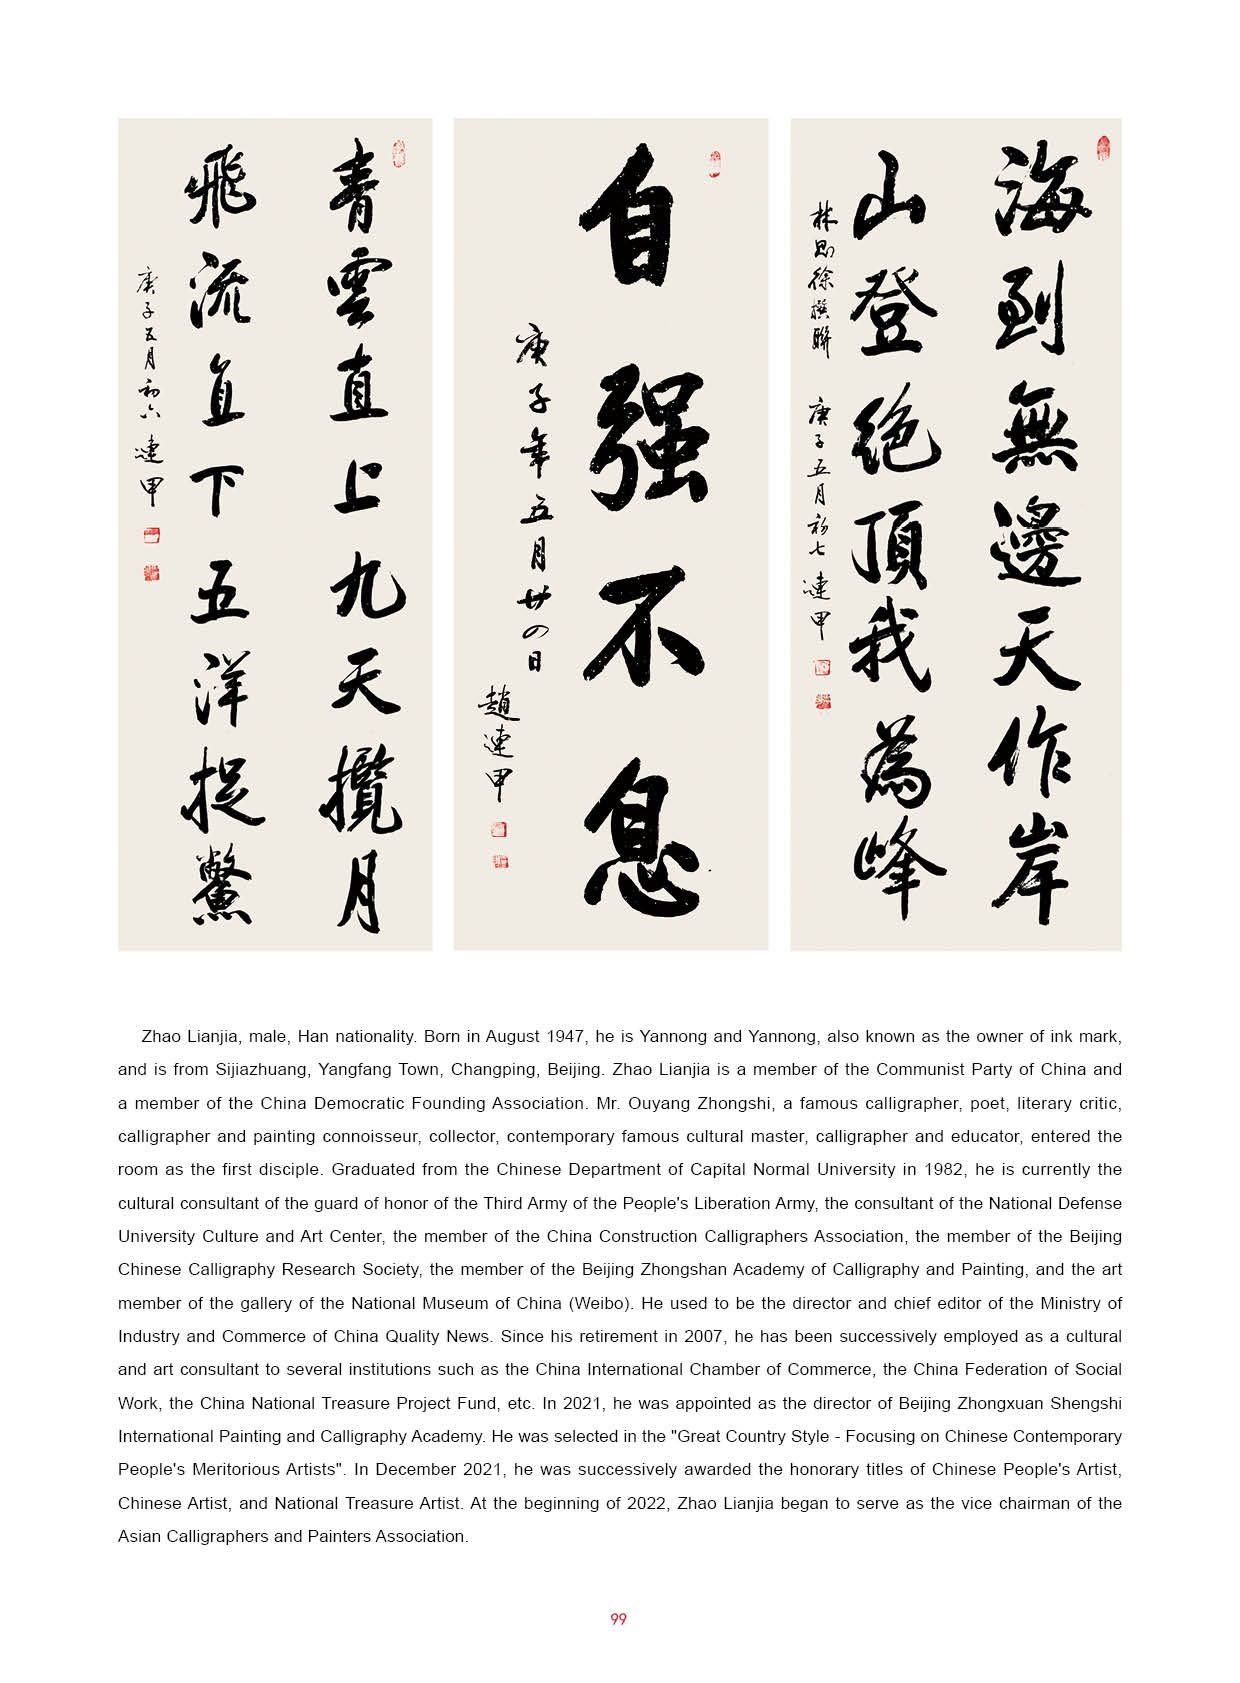 海到無邊天作岸
山登絕頂我為峰
林則徐撰聯 庚子五月初七 連甲
自强不息
庚子年五月廿四日
趙連甲
青雲直上九天攬月
飛流直下五洋捉鱉
庚子五月初六 連甲
Zhao Lianjia, male, Han nationality. Born in August 1947, he is Yannong and Yannong, also known as the owner of ink mark,
and is from Sijiazhuang, Yangfang Town, Changping, Beijing. Zhao Lianjia is a member of the Communist Party of China and
a member of the China Democratic Founding Association. Mr. Ouyang Zhongshi, a famous calligrapher, poet, literary critic,
calligrapher and painting connoisseur, collector, contemporary famous cultural master, calligrapher and educator, entered the
room as the first disciple. Graduated from the Chinese Department of Capital Normal University in 1982, he is currently the
cultural consultant of the guard of honor of the Third Army of the People's Liberation Army, the consultant of the National Defense
University Culture and Art Center, the member of the China Construction Calligraphers Association, the member of the Beijing
Chinese Calligraphy Research Society, the member of the Beijing Zhongshan Academy of Calligraphy and Painting, and the art
member of the gallery of the National Museum of China (Weibo). He used to be the director and chief editor of the Ministry of
Industry and Commerce of China Quality News. Since his retirement in 2007, he has been successively employed as a cultural
and art consultant to several institutions such as the China International Chamber of Commerce, the China Federation of Social
Work, the China National Treasure Project Fund, etc. In 2021, he was appointed as the director of Beijing Zhongxuan Shengshi
International Painting and Calligraphy Academy. He was selected in the "Great Country Style - Focusing on Chinese Contemporary
People's Meritorious Artists". In December 2021, he was successively awarded the honorary titles of Chinese People's Artist,
Chinese Artist, and National Treasure Artist. At the beginning of 2022, Zhao Lianjia began to serve as the vice chairman of the
Asian Calligraphers and Painters Association.
99